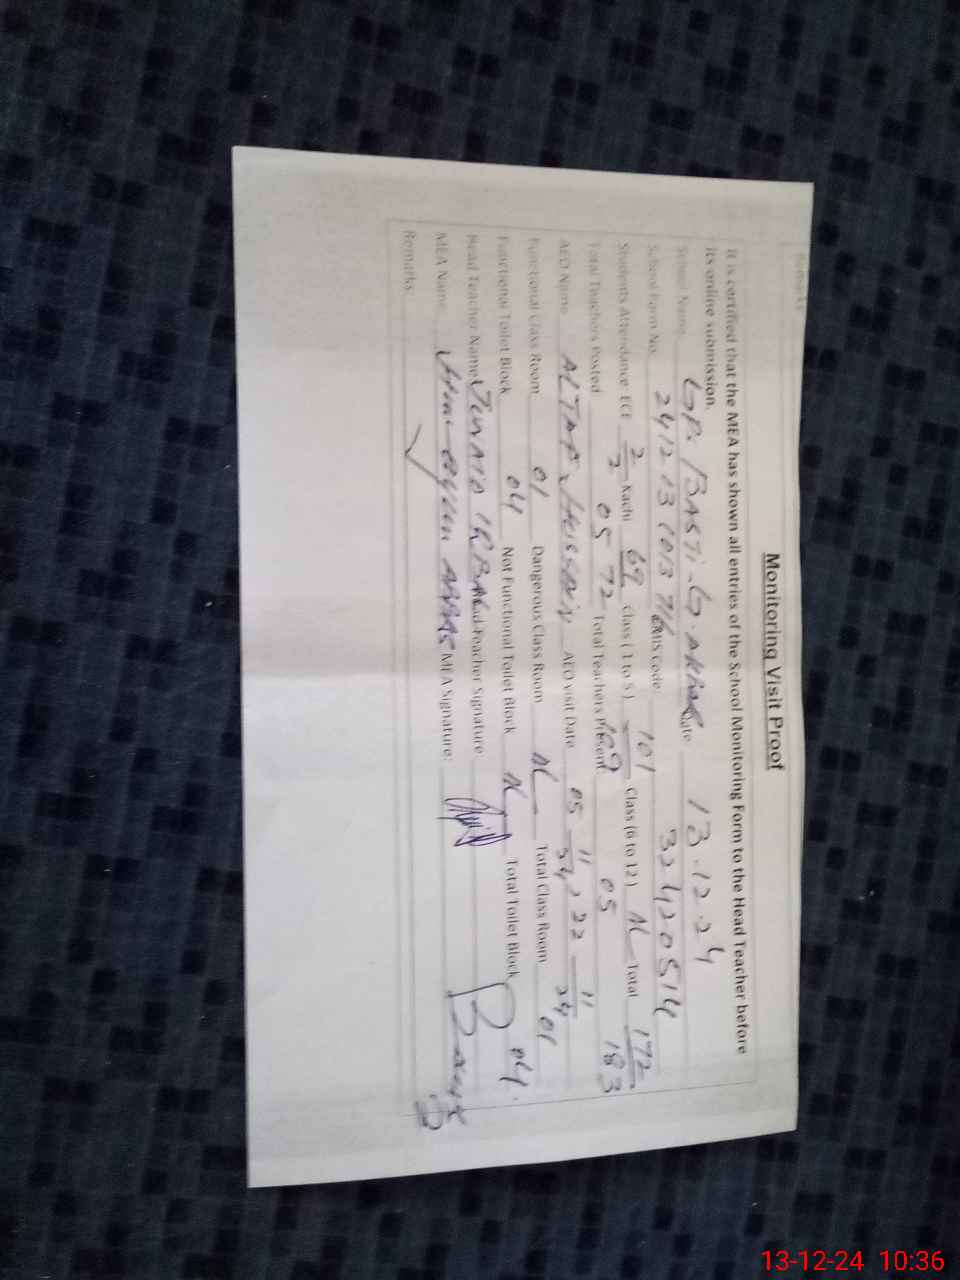 Remarks
Monitoring Visit Proof
It is certified that the MEA has shown all entries of the School Monitoring Form to the Head Teacher before
its online submission.
School Name GPS BASTI G. AKBAR Date: 13-12-24
School Form No. 2412131013716 EMIS Code: 32420514
Students Attendance ECE 2/2 Kachi 69/72 Class (1 to 5) 101/109 Class (6 to 12) Total 172/183
Total Teachers Posted 05 Total Teachers Present: 05
AEO Name ALTAF HUSSAIN AEO visit Date 05 11 24, 22 11 24
Functional Class Room 01 Dangerous Class Room Total Class Room 01
Functional Toilet Block 04 Not Functional Toilet Block Total Toilet Block 04
Head Teacher Name JUNAID IQBAL Head Teacher Signature:
MEA Name ABBAS MEA Signature:
Remarks
13-12-24 10:36